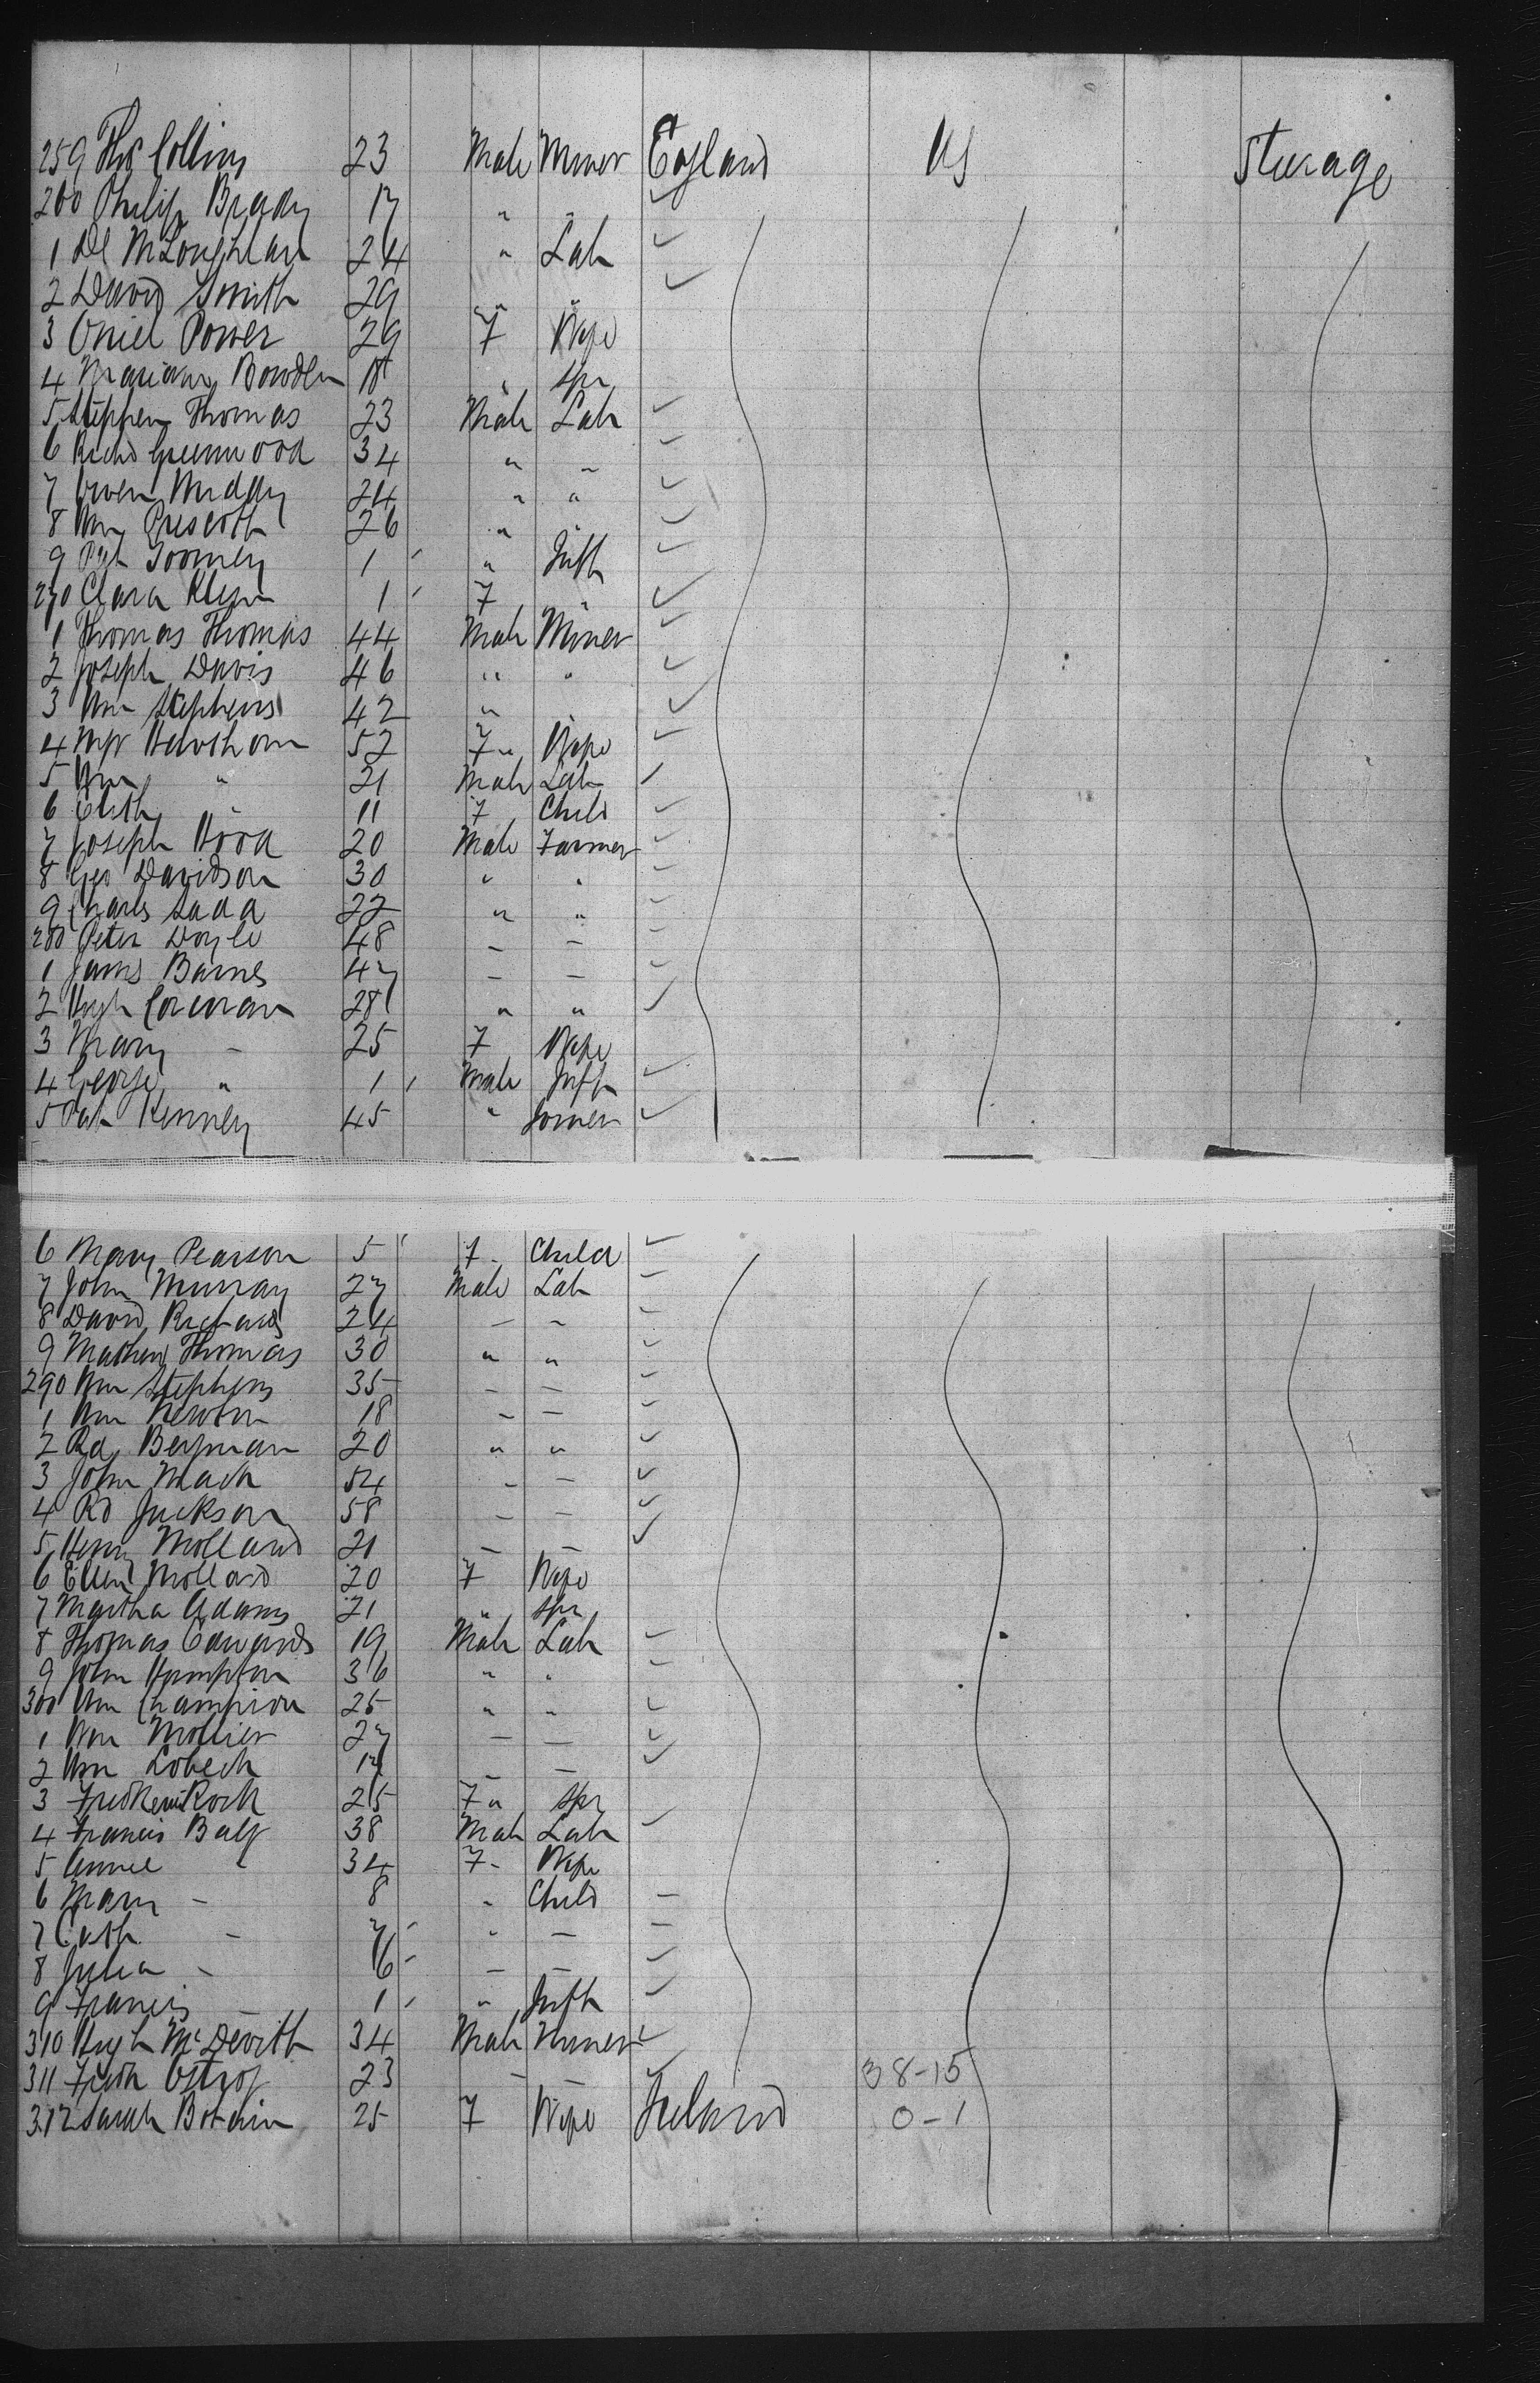 259 Thos Collins 23 Male Miner England US Sturage
260 Philip Brady 17 " "
1 Dl McLoughlan 24 " Lab
2 David Smith 29 " "
3 Power 29 F Wife
4 Bowden 18 " Spr
5 Stephen Thomas 23 Male Lab
6 Richd Greenwood 34 " "
7 Owen 24 " "
8 Wm Prescott 26 "
9 Pat Toomey 1 " Inft
270 Clara 1 F "
1 Thomas Thomas 44 Male Miner
2 Joseph Davis 46 " "
3 Wm Stephens 42 " "
4 Mgr Hawthorn 52 F " Wife
5 Wm " 21 Male Lab
6 Elizth " 11 F Child
7 Joseph Hood 20 Male Farmer
8 Geo Davidson 30 " "
9 Charls Ladd 22 " "
280 Peter Doyle 48 - -
1 Jams Barnes 47 - -
2 Hugh Corcoran 28 " "
3 Mary - 25 F Wife
4 George " 1 Male Inft
5 Pat Kenney 45 " Joiner
6 Mary Pearson 5 F - Child
7 John Murray 27 Male Lab
8 David Richards 24 - -
9 Mathew Thomas 30 " "
290 Wm Stephens 35 - -
1 Wm Newton 18 - -
2 Rd Bergman 20 " "
3 John Mack 54 - -
4 Rd Jackson 58 - -
5 Henry Molland 21 - -
6 Ellen Mollard 20 F Wife
7 Martha Adams 21 " Spr
8 Thomas Edwards 19 Male Lab
9 John Hampton 36 " "
300 Wm Champion 25 " "
1 Wm Mollier 27 - -
2 Wm Lobeck 17 - -
3 Rock 25 F " Spr
4 Francis Balf 38 Male Lab
5 Annie " 34 F - Wife
6 Mary - 8 " Child
7 Cath - 7 " -
8 Julia - 6 - -
9 Francis - 1 " Inft
310 Hugh McDevith 34 Male
311 Fredk 23 - - 38-15
312 Sarah 25 F Wife Ireland 0-1